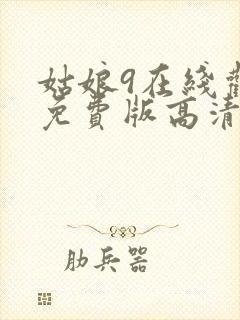 姑娘9在线
免費版高清
肋兵器